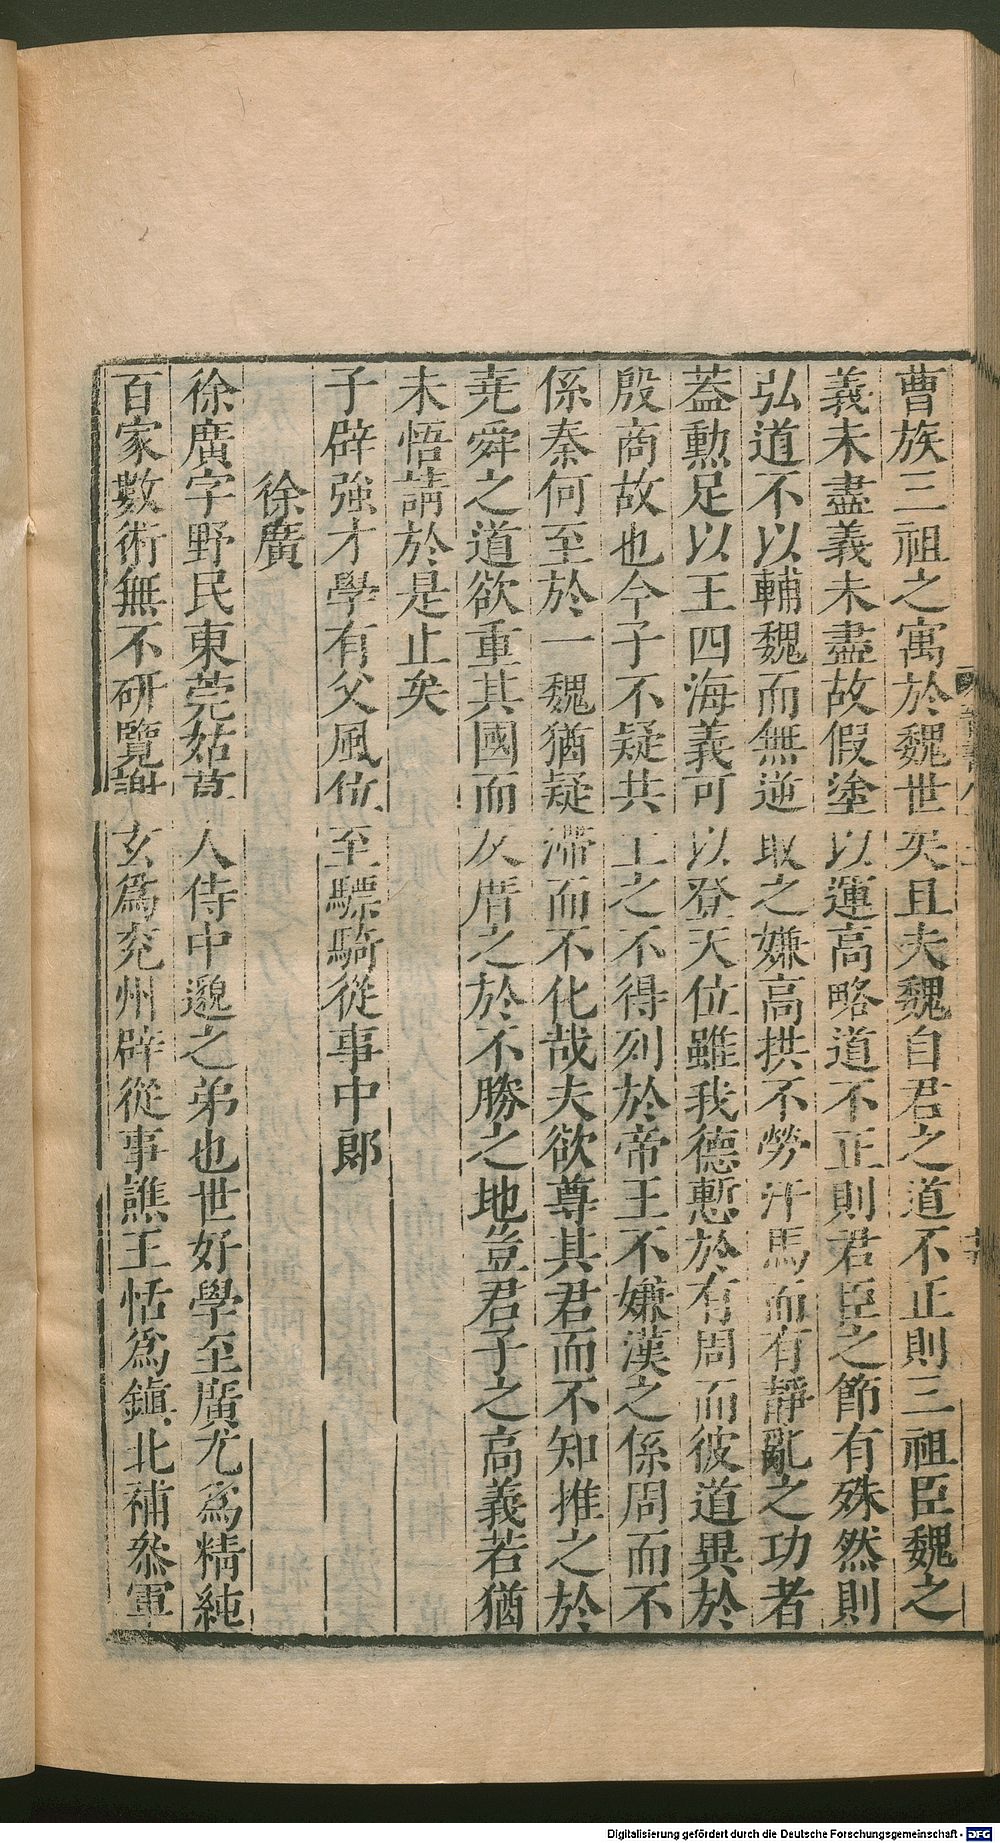 曹族三祖之寓於魏世矣且夫魏自君之道不正則三祖臣魏之
義未盡義未盡故假塗以運高略道不正則君臣之節有殊然則
弘道不以輔魏而無逆取之嫌高拱不勞汗馬而有靜亂之功者
蓋勲足以王四海義可以登天位雖我德慙於有周而彼道異於
殷商故也今子不疑共工之不得列於帝王不嫌漢之係周而不
係秦何至於一魏猶疑滯而不化哉夫欲尊其君而不知推之於
堯舜之道欲重其國而反厝之於不勝之地豈君子之高義若猶
未悟請於是止矣
子辟強才學有父風位至驃騎從事中郎
徐廣
徐廣字野民東莞姑幕人侍中邈之弟也世好學至廣尤為精純
百家數術無不研覽謝玄為兖州辟從事譙王恬為鎮北補叅軍
Digitalisierung gefördert durch die Deutsche Forschungsgemeinschaft - DFG